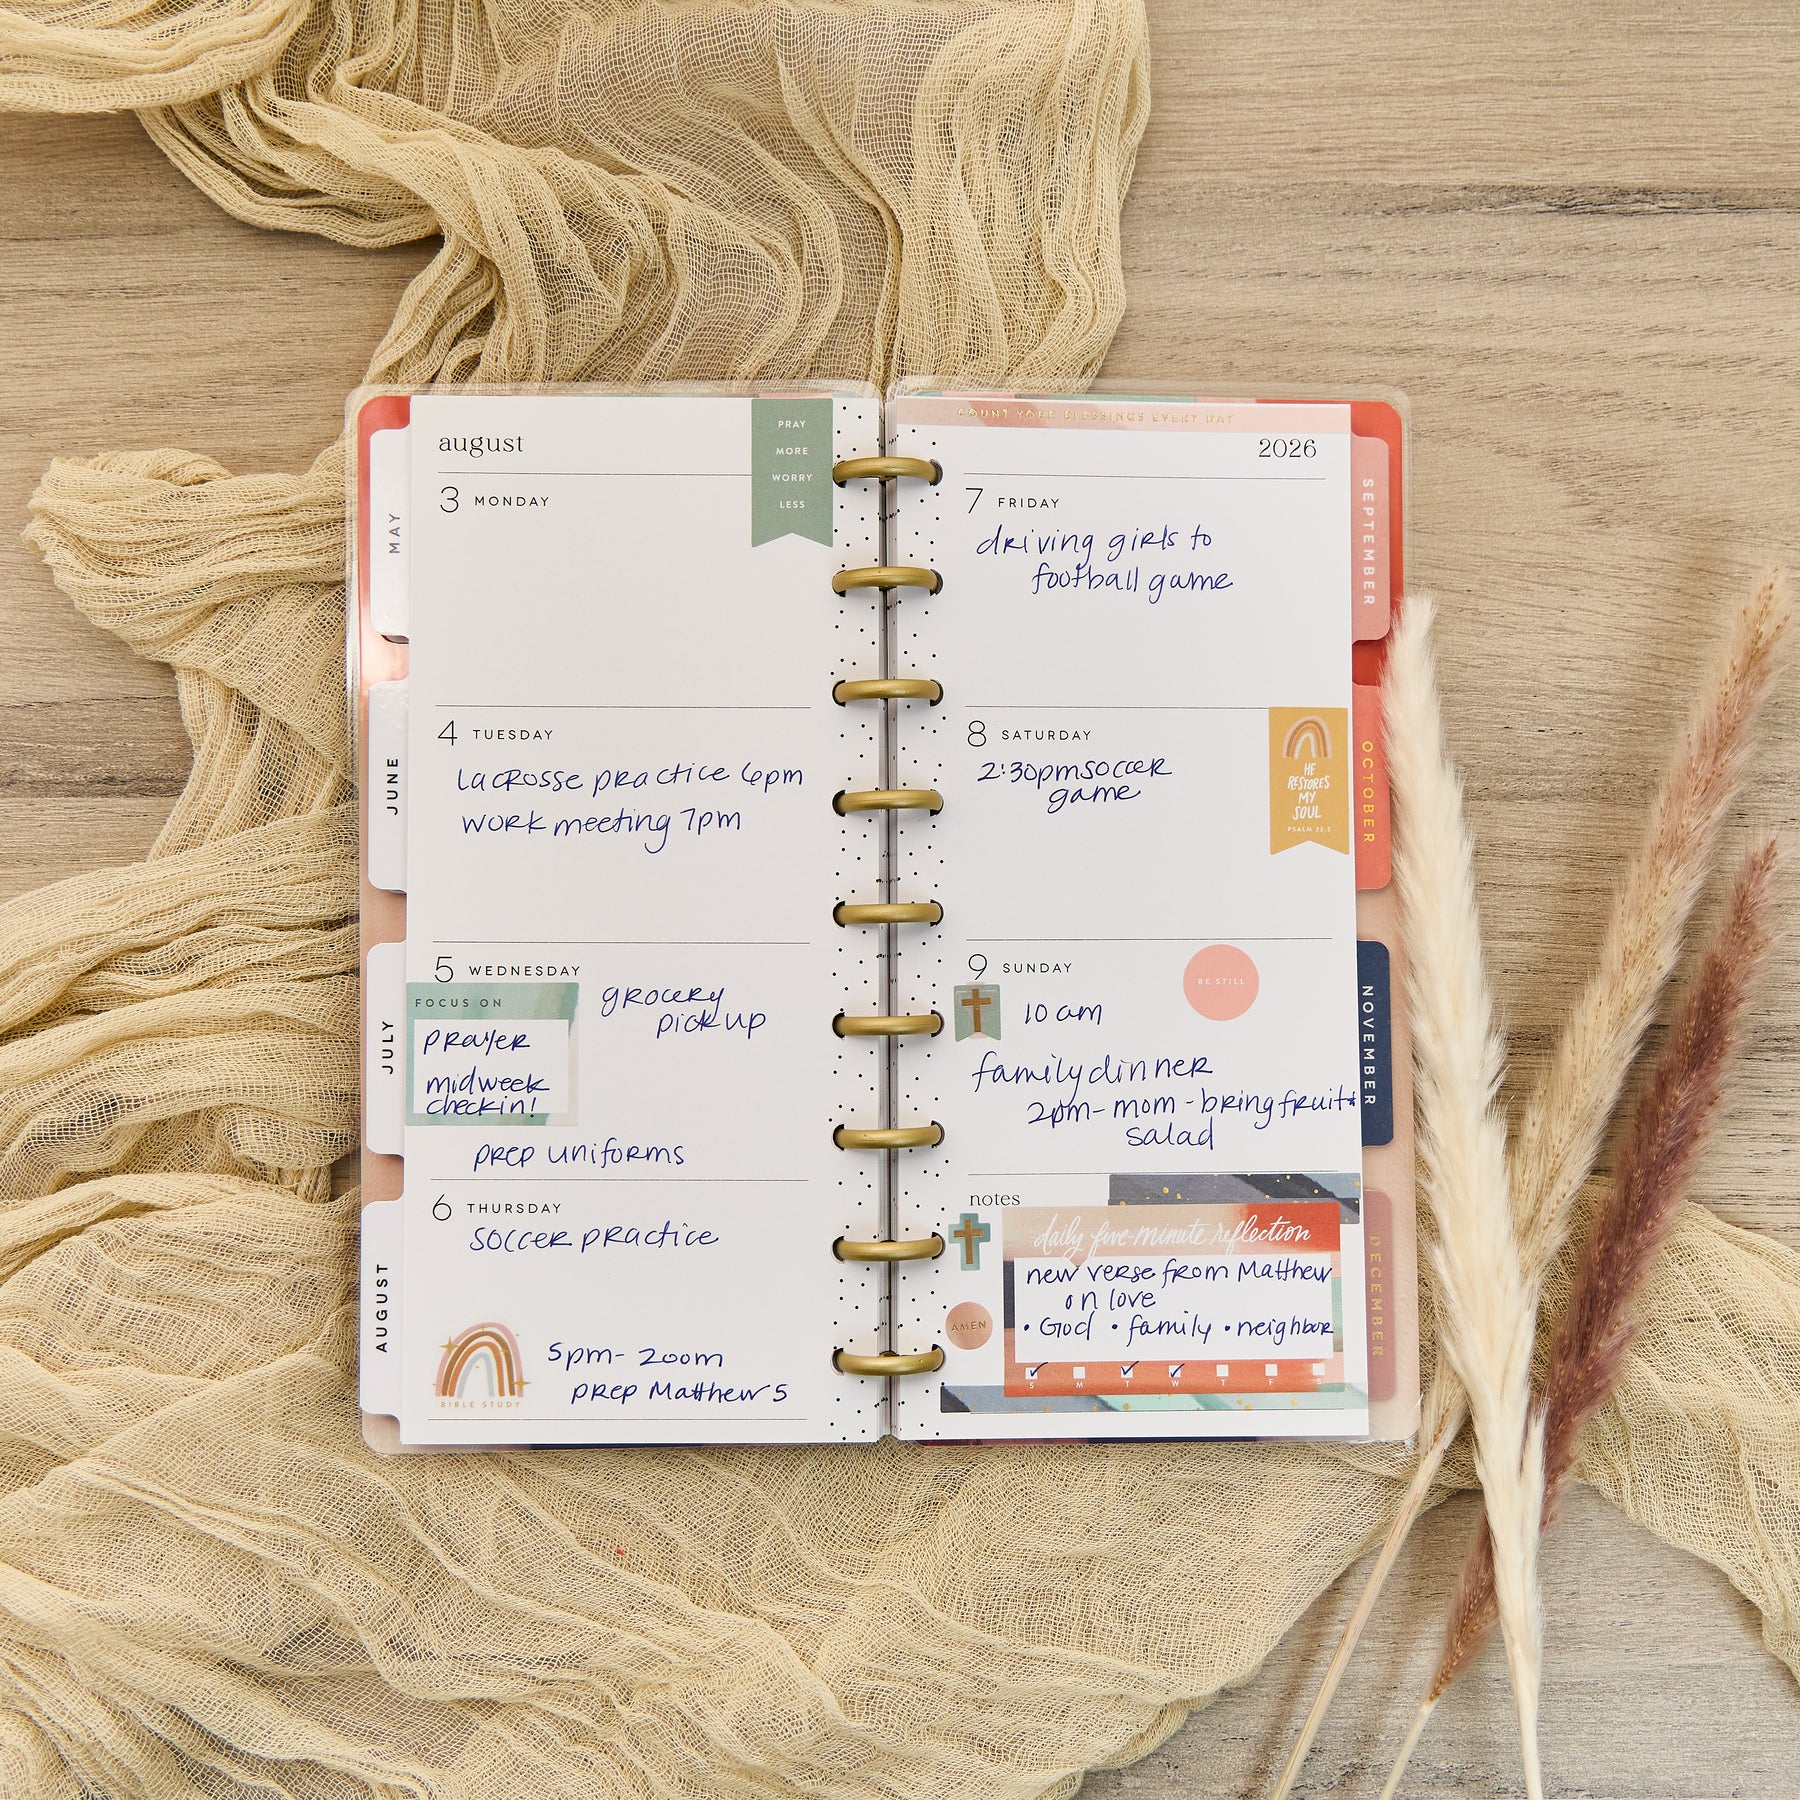 august
PRAY
MORE
WORRY
LESS
3 MONDAY
4 TUESDAY
lacrosse practice 6pm
work meeting 7pm
5 WEDNESDAY
FOCUS ON
prayer
midweek
checkin!
grocery
pick up
prep uniforms
6 THURSDAY
soccer practice
BIBLE STUDY
5pm- zoom
prep Matthew 5
MAY
JUNE
JULY
AUGUST
COUNT YOUR BLESSINGS EVERY DAY
2026
7 FRIDAY
driving girls to
football game
8 SATURDAY
2:30pm soccer
game
HE
RESTORES
MY
SOUL
PSALM 23:3
9 SUNDAY
BE STILL
10 am
family dinner
2pm- mom - bring fruit*
salad
notes
daily five-minute reflection
new verse from Matthew
on love
• God • family • neighbor
AMEN
S M T W T F S
SEPTEMBER
OCTOBER
NOVEMBER
DECEMBER